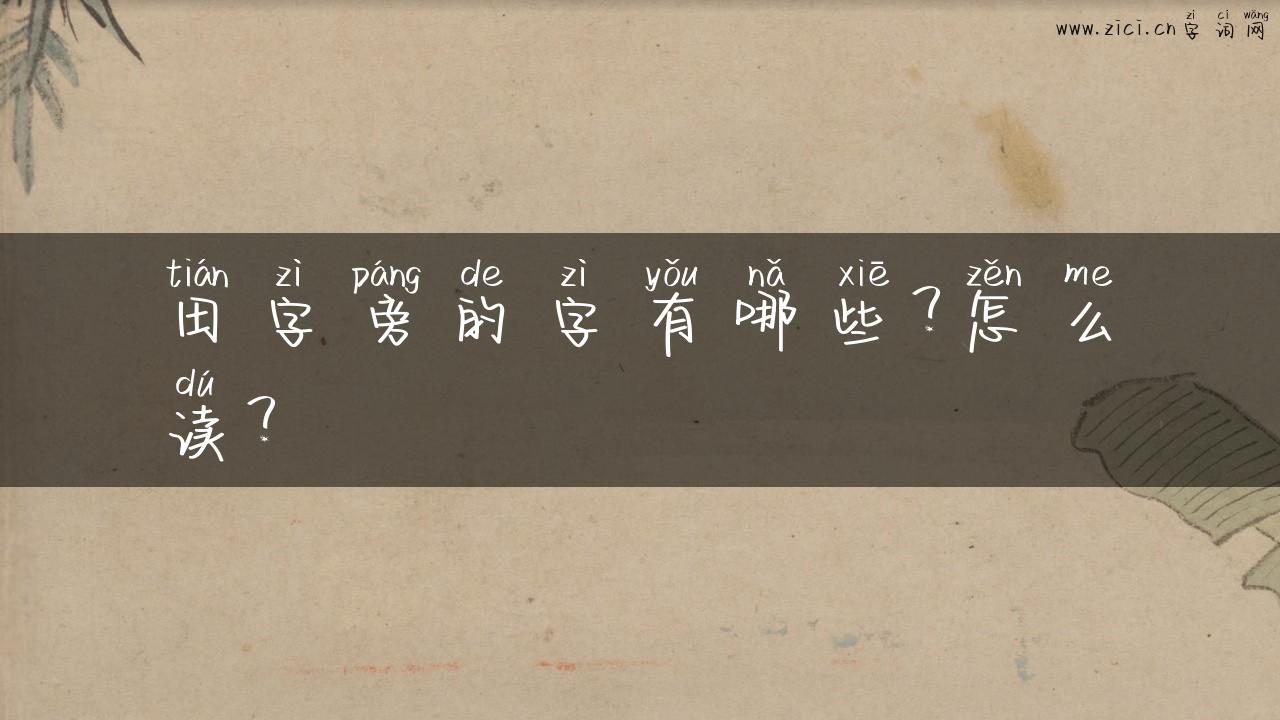 zì cí wǎng
www.zici.cn 字 词 网
tián zì páng de zì yǒu nǎ xiē zěn me
田 字 旁 的 字 有 哪 些 ? 怎 么
dú
读 ?